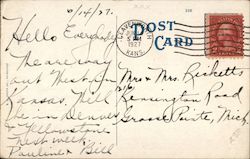 6/14/27.
Hello Everybody
We are way
out West in
Kansas. Will
be in Denver
& Yellowstone
next week
Pauline & Bill
POST CARD
1927
KANS.
Mr & Mrs Ricketts
Kensington Road
Grosse Pointe, Mich